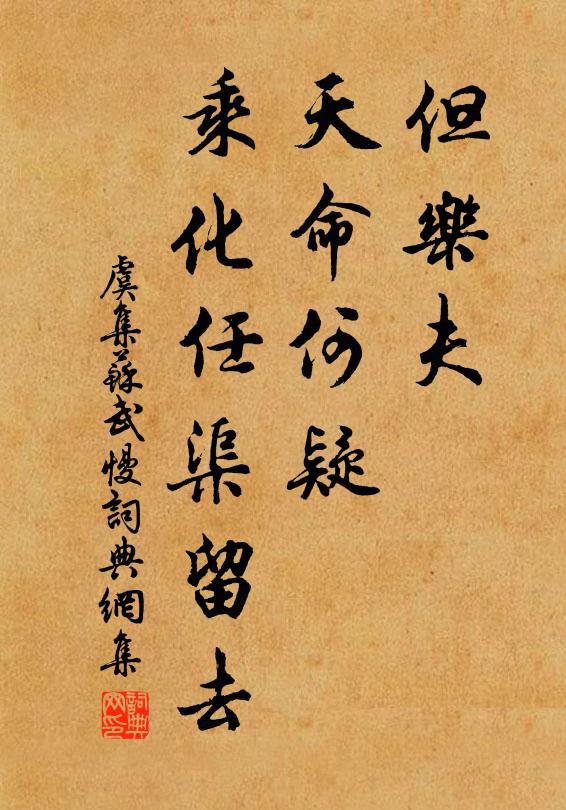 但樂夫
天命何疑
乘化任渠留去
虞集蘇武慢詞典網集
詞典
网印